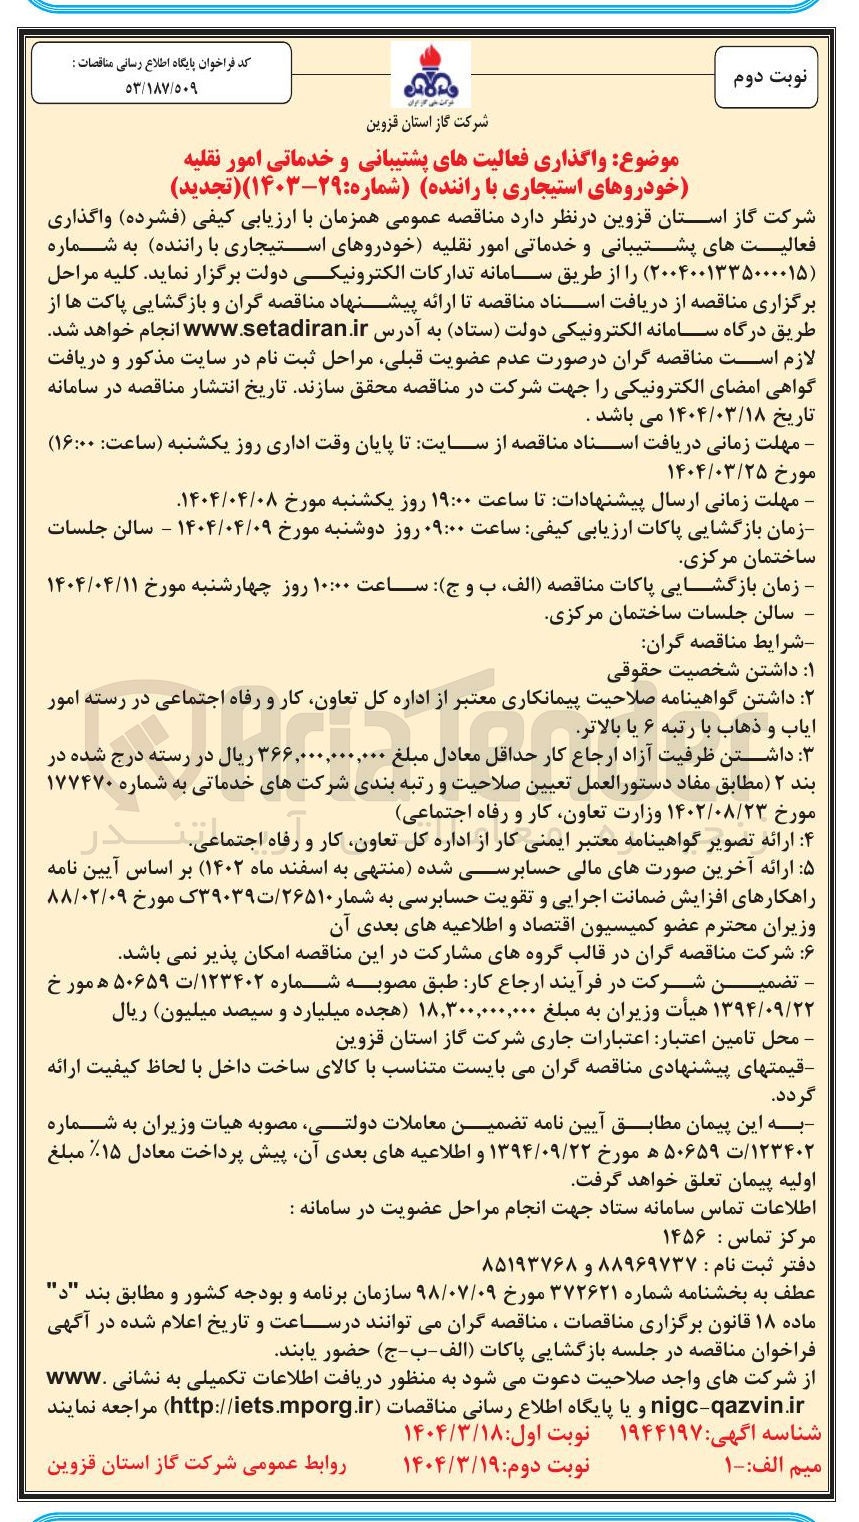 نوبت دوم
کد فراخوان پایگاه اطلاع رسانی مناقصات :
۵۳/۱۸۷/۵۰۹
شرکت ملی گاز ایران
شرکت گاز استان قزوین
موضوع: واگذاری فعالیت های پشتیبانی و خدماتی امور نقلیه
(خودروهای استیجاری با راننده) (شماره:۲۹-۱۴۰۳)(تجدید)
شرکت گاز اســتان قزوین درنظر دارد مناقصه عمومی همزمان با ارزیابی کیفی (فشرده) واگذاری
فعالیــت های پشــتیبانی و خدماتی امور نقلیه (خودروهای اســتیجاری با راننده) به شــماره
(۲۰۰۴۰۰۱۳۳۵۰۰۰۰۱۵) را از طریق ســامانه تدارکات الکترونیکــی دولت برگزار نماید. کلیه مراحل
برگزاری مناقصه از دریافت اســناد مناقصه تا ارائه پیشــنهاد مناقصه گران و بازگشایی پاکت ها از
طریق درگاه ســامانه الکترونیکی دولت (ستاد) به آدرس www.setadiran.ir انجام خواهد شد.
لازم اســت مناقصه گران درصورت عدم عضویت قبلی، مراحل ثبت نام در سایت مذکور و دریافت
گواهی امضای الکترونیکی را جهت شرکت در مناقصه محقق سازند. تاریخ انتشار مناقصه در سامانه
تاریخ ۱۴۰۴/۰۳/۱۸ می باشد .
- مهلت زمانی دریافت اســناد مناقصه از ســایت: تا پایان وقت اداری روز یکشنبه (ساعت: ۱۶:۰۰)
مورخ ۱۴۰۴/۰۳/۲۵
- مهلت زمانی ارسال پیشنهادات: تا ساعت ۱۹:۰۰ روز یکشنبه مورخ ۱۴۰۴/۰۴/۰۸.
-زمان بازگشایی پاکات ارزیابی کیفی: ساعت ۰۹:۰۰ روز دوشنبه مورخ ۱۴۰۴/۰۴/۰۹ - سالن جلسات
ساختمان مرکزی.
- زمان بازگشــایی پاکات مناقصه (الف، ب و ج): ســاعت ۱۰:۰۰ روز چهارشنبه مورخ ۱۴۰۴/۰۴/۱۱
- سالن جلسات ساختمان مرکزی.
-شرایط مناقصه گران:
۱: داشتن شخصیت حقوقی
۲: داشتن گواهینامه صلاحیت پیمانکاری معتبر از اداره کل تعاون، کار و رفاه اجتماعی در رسته امور
ایاب و ذهاب با رتبه ۶ یا بالاتر.
۳: داشــتن ظرفیت آزاد ارجاع کار حداقل معادل مبلغ ۳۶۶,۰۰۰,۰۰۰,۰۰۰ ریال در رسته درج شده در
بند ۲ (مطابق مفاد دستورالعمل تعیین صلاحیت و رتبه بندی شرکت های خدماتی به شماره ۱۷۷۴۷۰
مورخ ۱۴۰۲/۰۸/۲۳ وزارت تعاون، کار و رفاه اجتماعی)
۴: ارائه تصویر گواهینامه معتبر ایمنی کار از اداره کل تعاون، کار و رفاه اجتماعی.
۵: ارائه آخرین صورت های مالی حسابرســی شده (منتهی به اسفند ماه ۱۴۰۲) بر اساس آیین نامه
راهکارهای افزایش ضمانت اجرایی و تقویت حسابرسی به شمار۲۶۵۱۰/ت۳۹۰۳۹ک مورخ ۸۸/۰۲/۰۹
وزیران محترم عضو کمیسیون اقتصاد و اطلاعیه های بعدی آن
۶: شرکت مناقصه گران در قالب گروه های مشارکت در این مناقصه امکان پذیر نمی باشد.
- تضمیــن شــرکت در فرآیند ارجاع کار: طبق مصوبــه شــماره ۱۲۳۴۰۲/ت ۵۰۶۵۹ ه مور خ
۱۳۹۴/۰۹/۲۲ هیأت وزیران به مبلغ ۱۸,۳۰۰,۰۰۰,۰۰۰ (هجده میلیارد و سیصد میلیون) ریال
- محل تامین اعتبار: اعتبارات جاری شرکت گاز استان قزوین
-قیمتهای پیشنهادی مناقصه گران می بایست متناسب با کالای ساخت داخل با لحاظ کیفیت ارائه
گردد.
-بــه این پیمان مطابــق آیین نامه تضمیــن معاملات دولتــی، مصوبه هیات وزیران به شــماره
۱۲۳۴۰۲/ت ۵۰۶۵۹ ه مورخ ۱۳۹۴/۰۹/۲۲ و اطلاعیه های بعدی آن، پیش پرداخت معادل ۱۵٪ مبلغ
اولیه پیمان تعلق خواهد گرفت.
اطلاعات تماس سامانه ستاد جهت انجام مراحل عضویت در سامانه :
مرکز تماس : ۱۴۵۶
دفتر ثبت نام : ۸۸۹۶۹۷۳۷ و ۸۵۱۹۳۷۶۸
عطف به بخشنامه شماره ۳۷۲۶۲۱ مورخ ۹۸/۰۷/۰۹ سازمان برنامه و بودجه کشور و مطابق بند "د"
ماده ۱۸ قانون برگزاری مناقصات ، مناقصه گران می توانند درســاعت و تاریخ اعلام شده در آگهی
فراخوان مناقصه در جلسه بازگشایی پاکات (الف-ب-ج) حضور یابند.
از شرکت های واجد صلاحیت دعوت می شود به منظور دریافت اطلاعات تکمیلی به نشانی www.
nigc-qazvin.ir و یا پایگاه اطلاع رسانی مناقصات (http://iets.mporg.ir) مراجعه نمایند
شناسه آگهی:۱۹۴۴۱۹۷ نوبت اول:۱۴۰۴/۳/۱۸
میم الف:-۱ نوبت دوم:۱۴۰۴/۳/۱۹ روابط عمومی شرکت گاز استان قزوین
AriaTender